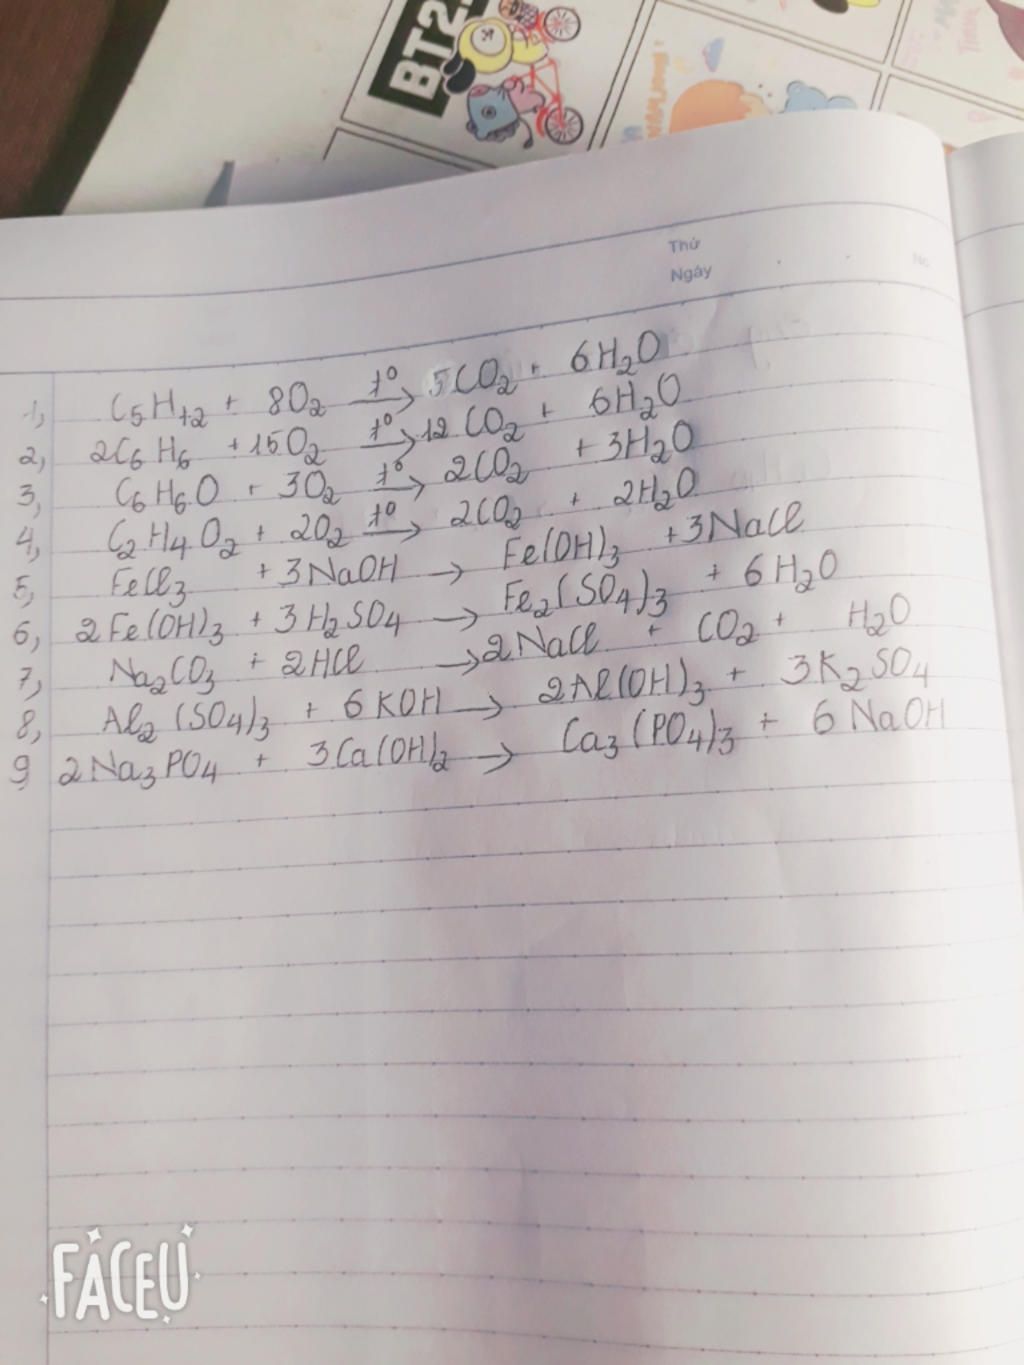 BT2
Thứ
Ngày
No
1, C5H12 + 8O2 t° → 5CO2 + 6H2O
2, 2C6H6 + 15O2 t° → 12CO2 + 6H2O
3, C6H6O + 3O2 t° → 2CO2 + 3H2O
4, C2H4O2 + 2O2 t° → 2CO2 + 2H2O
5, FeCl3 + 3NaOH → Fe(OH)3 + 3NaCl
6, 2Fe(OH)3 + 3H2SO4 → Fe2(SO4)3 + 6H2O
7, Na2CO3 + 2HCl → 2NaCl + CO2 + H2O
8, Al2(SO4)3 + 6KOH → 2Al(OH)3 + 3K2SO4
9 2Na3PO4 + 3Ca(OH)2 → Ca3(PO4)3 + 6NaOH
FACEU